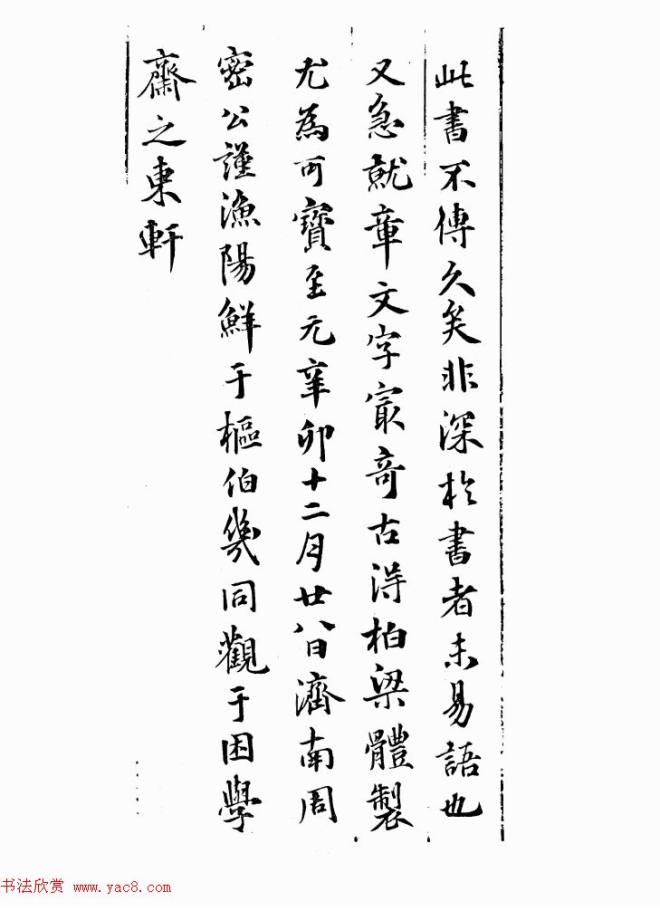 此書不傳久矣非深於書者未易語也
又急就章文字冣奇古得柏梁體製
尤為可寶至元辛卯十二月廿八日濟南周
密公謹漁陽鮮于樞伯幾同觀于困學
齋之東軒
书法欣赏 www.yac8.com